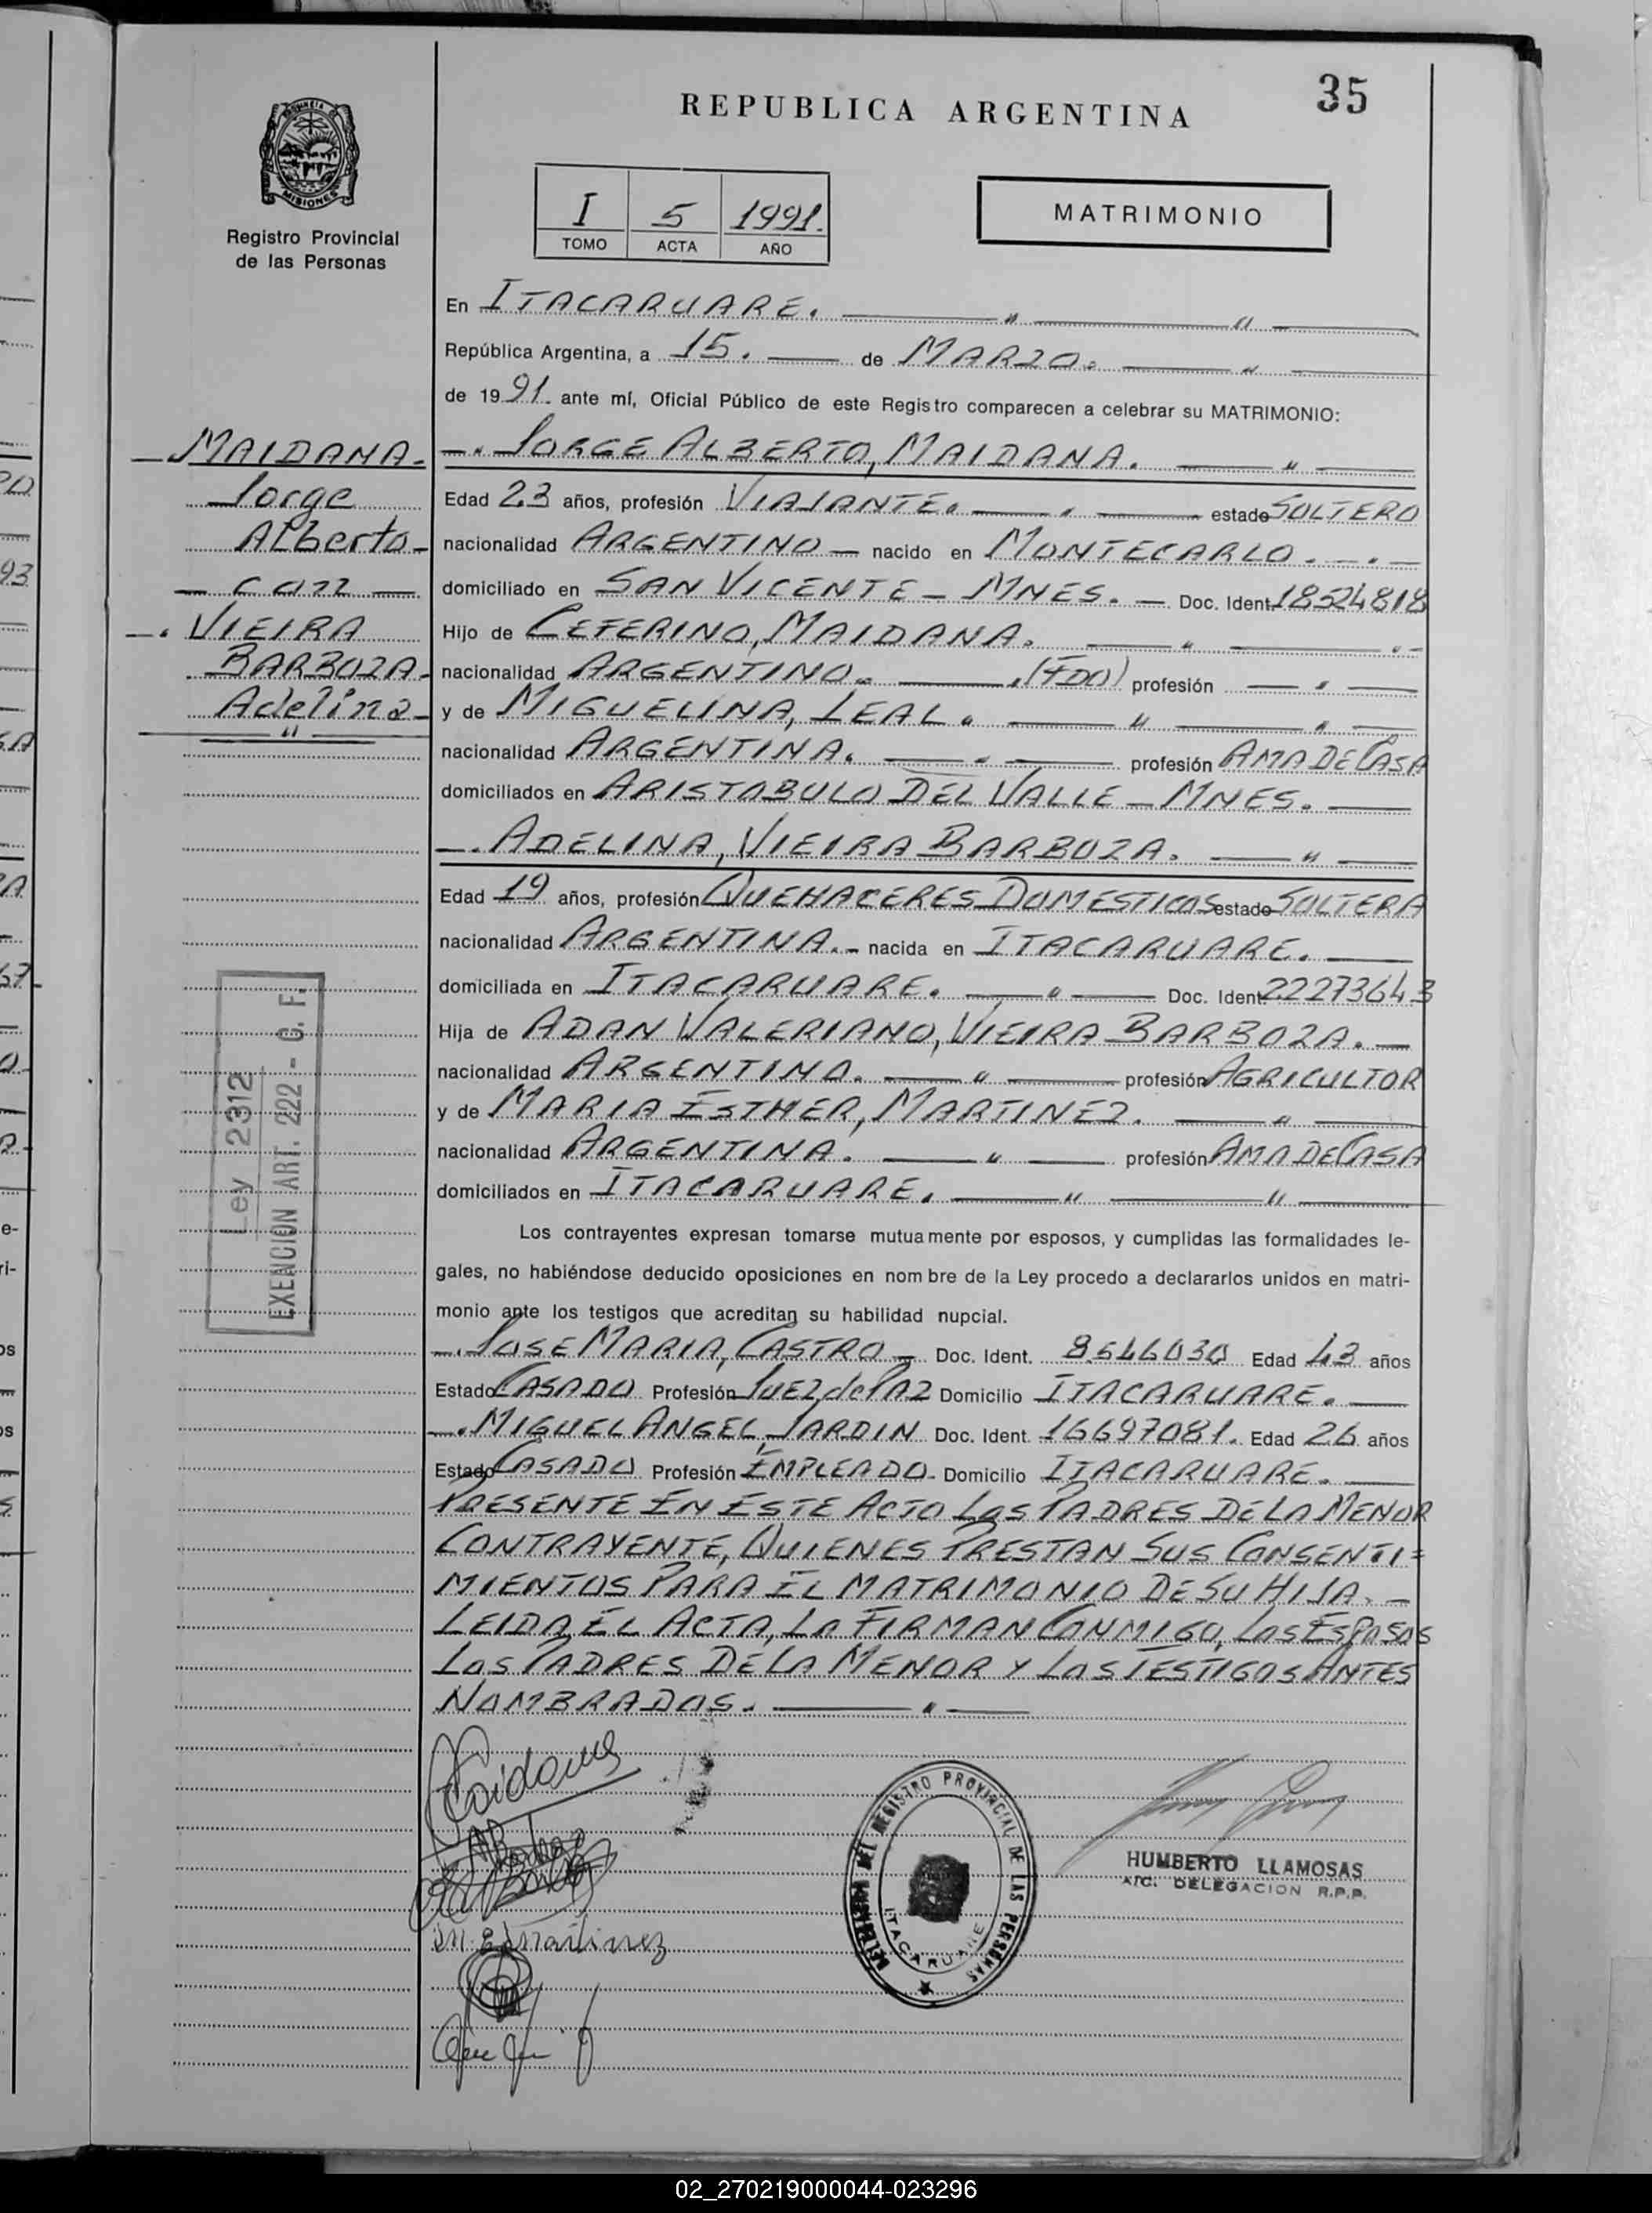 35
REPUBLICA ARGENTINA
PROVINCIA DE
MISIONES
Registro Provincial
de las Personas
I 5 1991.
TOMO ACTA AÑO
MATRIMONIO
En ITACARUARE. — " — " —
República Argentina, a 15. — de MARZO. — " —
de 1991. ante mí, Oficial Público de este Registro comparecen a celebrar su MATRIMONIO:
—MAIDANA.-
Jorge
Alberto-
— con —.
—. VIEIRA
BARBOZA-
Adelina-
— " —
—. JORGE ALBERTO, MAIDANA. — " —
Edad 23 años, profesión VIAJANTE. — . — estado SOLTERO
nacionalidad ARGENTINO — nacido en MONTECARLO. -.-.-
domiciliado en SAN VICENTE - MNES. — Doc. Ident. 18524818
Hijo de CEFERINO, MAIDANA. — " — .-
nacionalidad ARGENTINO.- — .(FDO) profesión — . —
y de MIGUELINA, LEAL. — " — " —
nacionalidad ARGENTINA. — - — profesión AMA DE CASA
domiciliados en ARISTOBULO DEL VALLE - MNES. —
—. ADELINA, VIEIRA BARBOZA. — " —
Edad 19 años, profesión QUEHACERES DOMESTICOS estado SOLTERA
nacionalidad ARGENTINA.- nacida en ITACARUARE. —
domiciliada en ITACARUARE. — " — Doc. Ident. 22273643
Hija de ADAN VALERIANO, VIEIRA BARBOZA. —
nacionalidad ARGENTINO. — " — profesión AGRICULTOR
y de MARIA ESTHER, MARTINEZ. — " —
nacionalidad ARGENTINA. — " — profesión AMA DE CASA
domiciliados en ITACARUARE. — " — " —
Ley 2312
EXENCION ART. 222 - C. F.
Los contrayentes expresan tomarse mutuamente por esposos, y cumplidas las formalidades le-
gales, no habiéndose deducido oposiciones en nombre de la Ley procedo a declararlos unidos en matri-
monio ante los testigos que acreditan su habilidad nupcial.
—. JOSE MARIA, CASTRO — Doc. Ident. 8546030 Edad 43 años
Estado CASADO Profesión JUEZ de PAZ Domicilio ITACARUARE. —
—. MIGUEL ANGEL, JARDIN Doc. Ident. 16697081. Edad 26 años
Estado CASADO Profesión EMPLEADO- Domicilio ITACARUARE. —
PRESENTE EN ESTE ACTO LOS PADRES DE LA MENOR
CONTRAYENTE, QUIENES PRESTAN SUS CONSENTI=
MIENTOS PARA EL MATRIMONIO DE SU HIJA. —
LEIDA EL ACTA, LA FIRMAN CONMIGO, LOS ESPOSOS
LOS PADRES DE LA MENOR Y LOS TESTIGOS ANTES
NOMBRADOS. — " —
Maidana
M. E. Martinez
REGISTRO PROVINCIAL DE LAS PERSONAS
ITACARUARE
HUMBERTO LLAMOSAS
A/C. DELEGACION R.P.P.
02_270219000044-023296